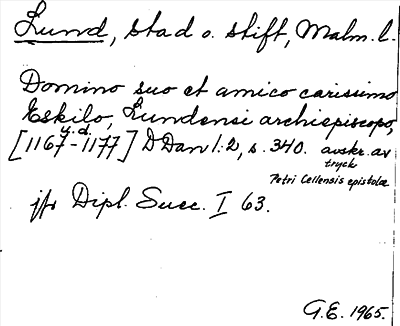 Lund, stad o. stift, Malm. l.
Domino suo et amico carissimo
Eskilo, Lundensi archiepiscopo,
u.d.
[1167-1177] DDan 1:2, s. 340. avskr. av
tryck
Petri Cellensis epistolæ
jfr Dipl. Suec. I 63.
G.E. 1965.